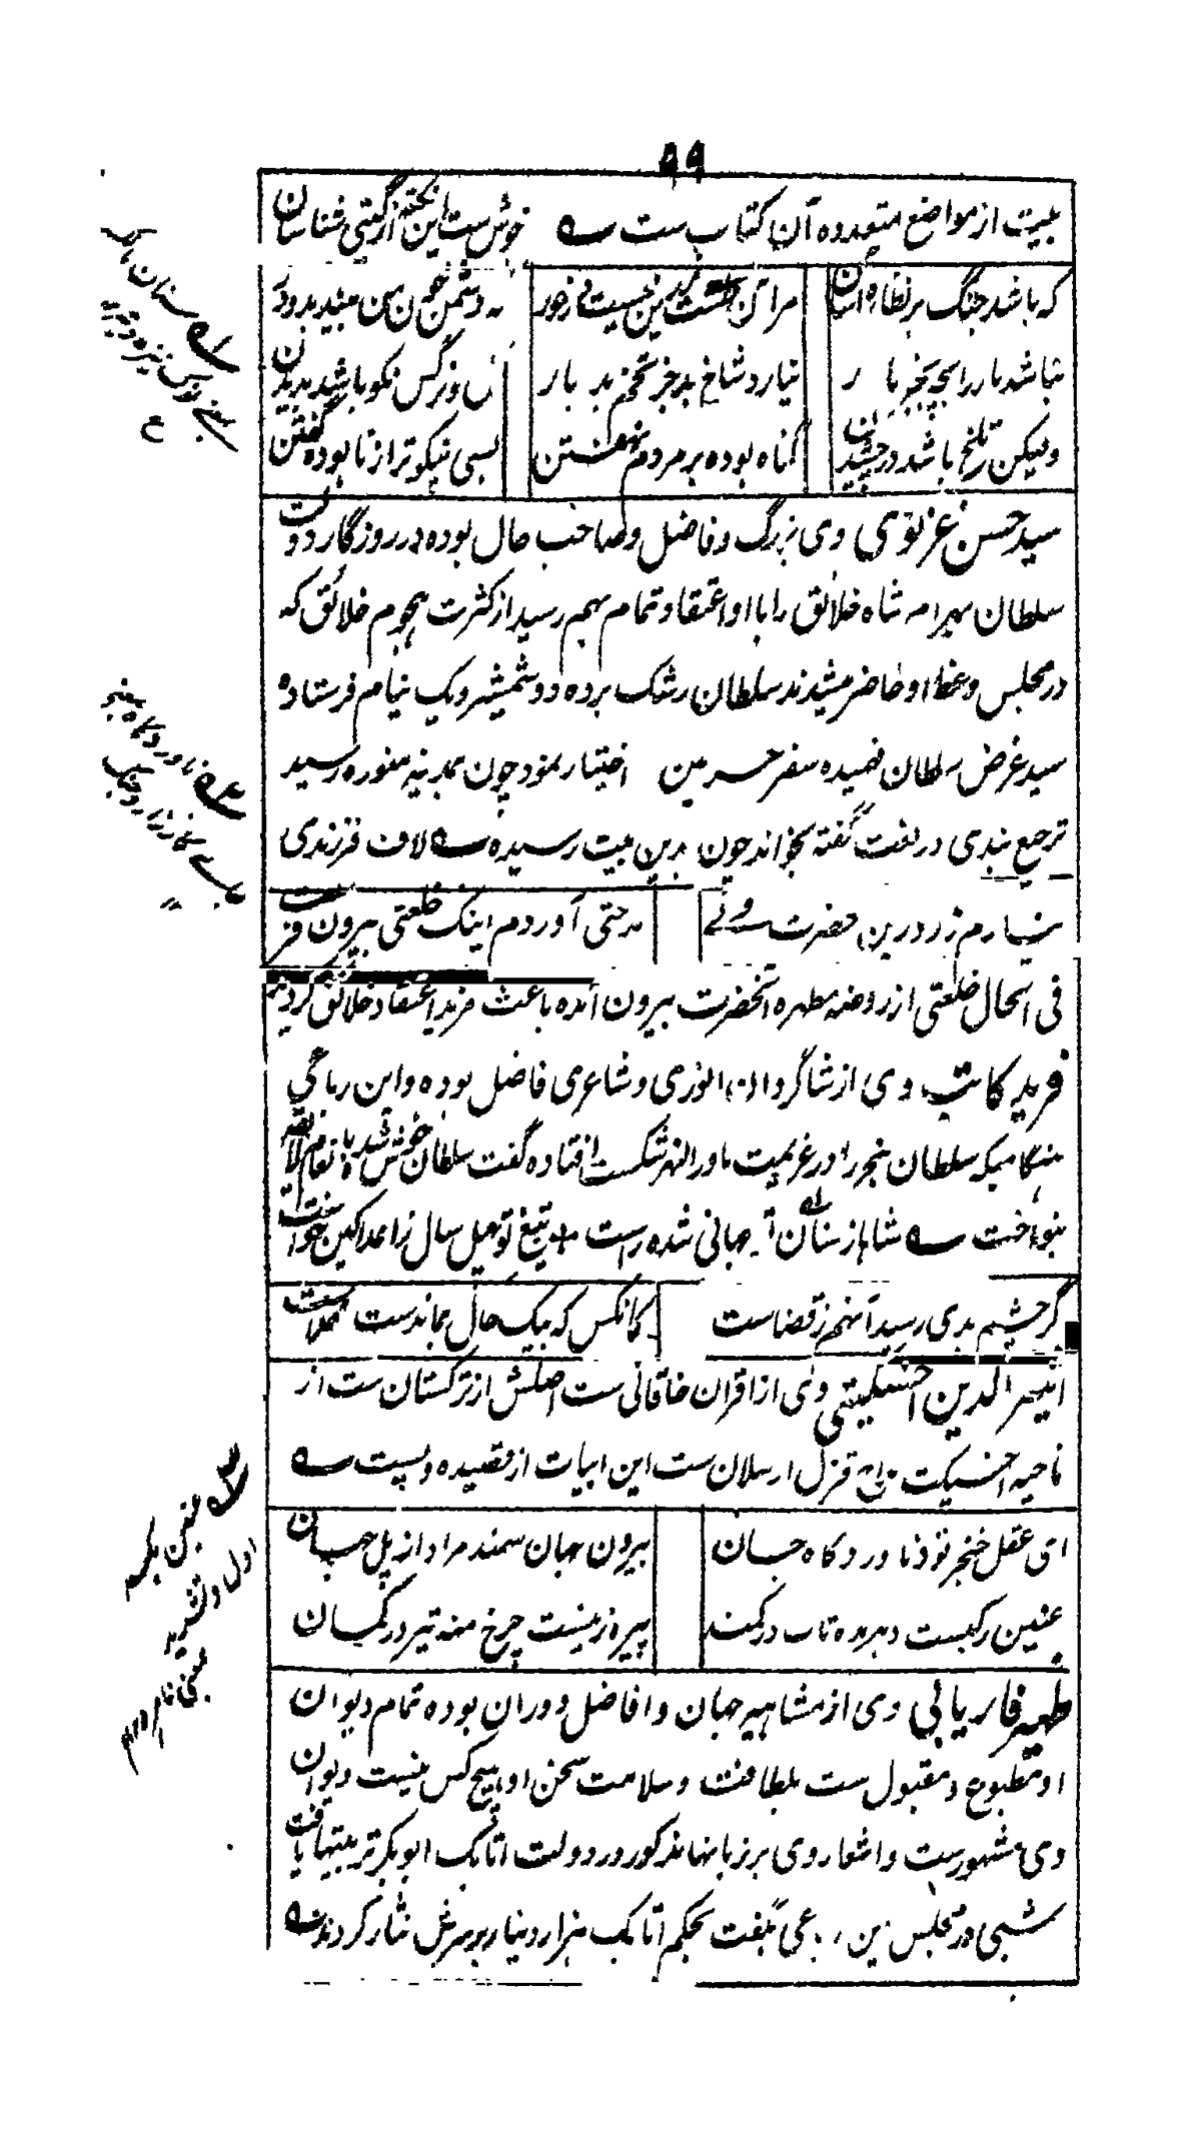 ۹۹
بیت از مواضع متعدده آن کتاب ست خوش ست این نکته از گیتی شناسان
که باشد جنگ بر نظاره آسان مرا آن طشت زرین نیست در خور که دشمن خون من بیند بدو در
نباشد مار را بچه بجز مار نیارد شاخ بد جز تخم بد بار نکو باشد بدیدن
ولیکن تلخ باشد در چشیدن گناه بوده بر مردم نهفتن بسی نیکوتر از نابوده گفتن
سید حسن غزنوی وی بزرگ و فاضل و صاحب حال بوده در روزگار دولت
سلطان بهرام شاه خلائق را با او اعتقاد تمام بهم رسید از کثرت هجوم خلائق که
در مجلس وعظ او حاضر میشدند سلطان رشک برده دو شمشیر و یک نیام فرستاده
سید غرض سلطان فهمیده سفر حرمین اختیار نمود چون بمدینه منوره رسید
ترجیع بندی در نعت گفته بخواند چون بدین بیت رسیده لاف فرزندی
نیارم زد درین حضرت ولی مدحتی آوردم اینک خلعتی بیرون فرست
فی الحال خلعتی از روضه مطهره آنحضرت بیرون آمده باعث مزید اعتقاد خلائق گردید
فرید کاتب وی از شاگردان انوری و شاعری فاضل بوده و این رباعی
هنگامیکه سلطان سنجر را در عزیمت ماورالنهر شکست افتاده گفت سلطان خوش شد بانعام لائقه
بنواخت شاها ز سنان تو جهانی شده راست تیغ تو چهل سال ز اعدا کین خواست
گر چشم بدی رسید آنهم ز قضاست کانکس که بیک حال بماندست خداست
اثیر الدین اخسیکتی وی از اقران خاقانی ست اصلش از ترکستان ست از
ناحیه اخسیکت مداح قزل ارسلان ست این ابیات از قصیده ویست
ای عقل خنجر تو ناورد گاه جان بیرون جهان سمند مراد از پل جهان
عنین رگیست دهر مده تاب در کمند پیره زنیست چرخ منه تیر در کمان
ظهیر فاریابی وی از مشاهیر جهان و افاضل دوران بوده تمام دیوان
او مطبوع و مقبول ست بلطافت و سلامت سخن او هیچ کس نیست دیوان
وی مشهورست و اشعار وی بر زبانها مذکور در دولت اتابک ابوبکر تربیتها یافت
شبی در مجلس این رباعی بگفت بحکم اتابک هزار دینار بر سرش نثار کردند
سنان
نیزه
ناورد گاه
کارزار و جنگ
عنین بکسر
اول و تشدید
بمعنی نامرد